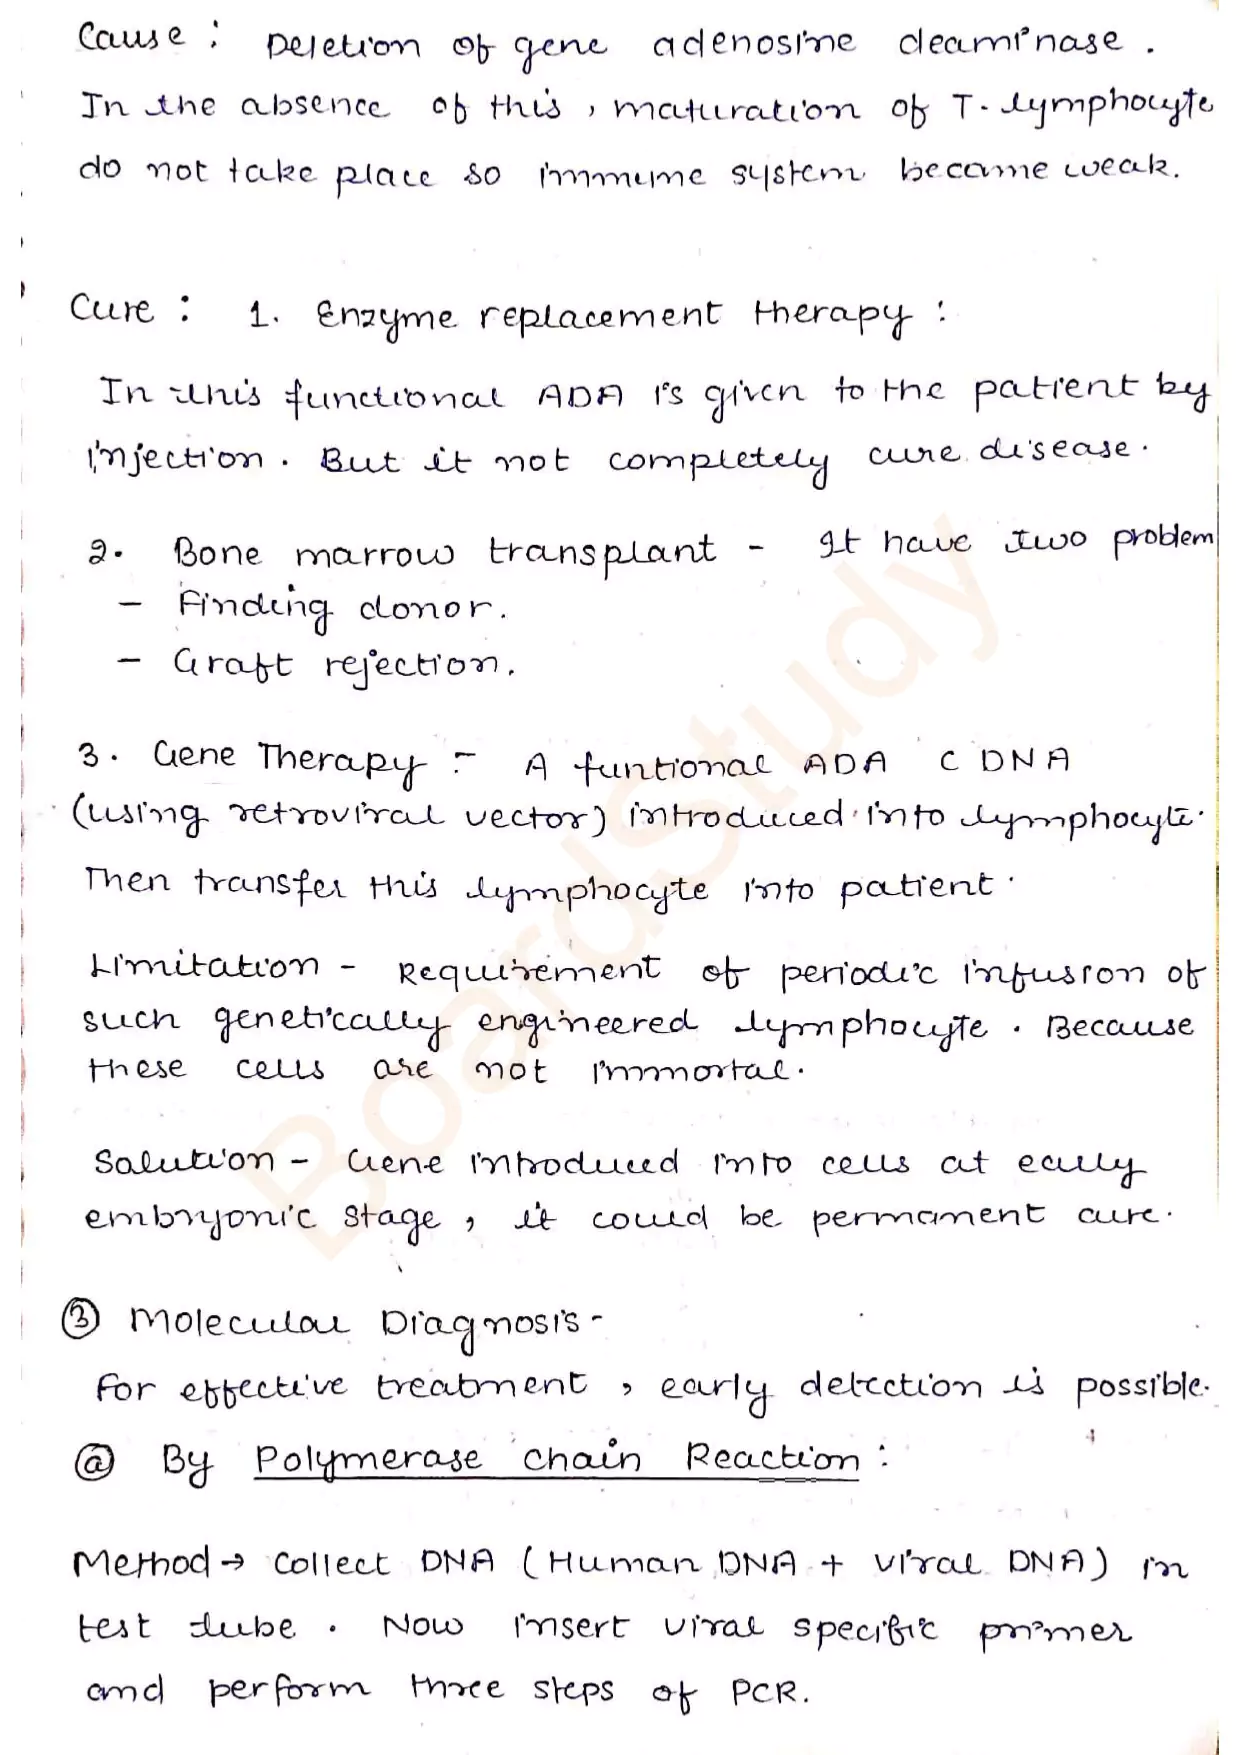 Cause : Deletion of gene adenosine deaminase .
In the absence of this , maturation of T- lymphocyte
do not take place so immune system become weak.
Cure : 1. Enzyme replacement therapy :
In this functional ADA is given to the patient by
injection . But it not completely cure disease .
2. Bone marrow transplant - It have two problem
- Finding donor.
- Graft rejection.
3. Gene Therapy :- A funtional ADA C DNA
(using retroviral vector) introduced into lymphocyte.
Then transfer this lymphocyte into patient .
Limitation - Requirement of periodic infusion of
such genetically engineered lymphocyte . Because
these cells are not immortal.
Solution - Gene introduced into cells at early
embryonic stage , it could be permanent cure.
③ Molecular Diagnosis -
For effective treatment , early detection is possible.
ⓐ By Polymerase chain Reaction :
Method → Collect DNA ( Human DNA + viral DNA ) in
test tube . Now insert viral specific primer
and perform three steps of PCR.
BoardStudy